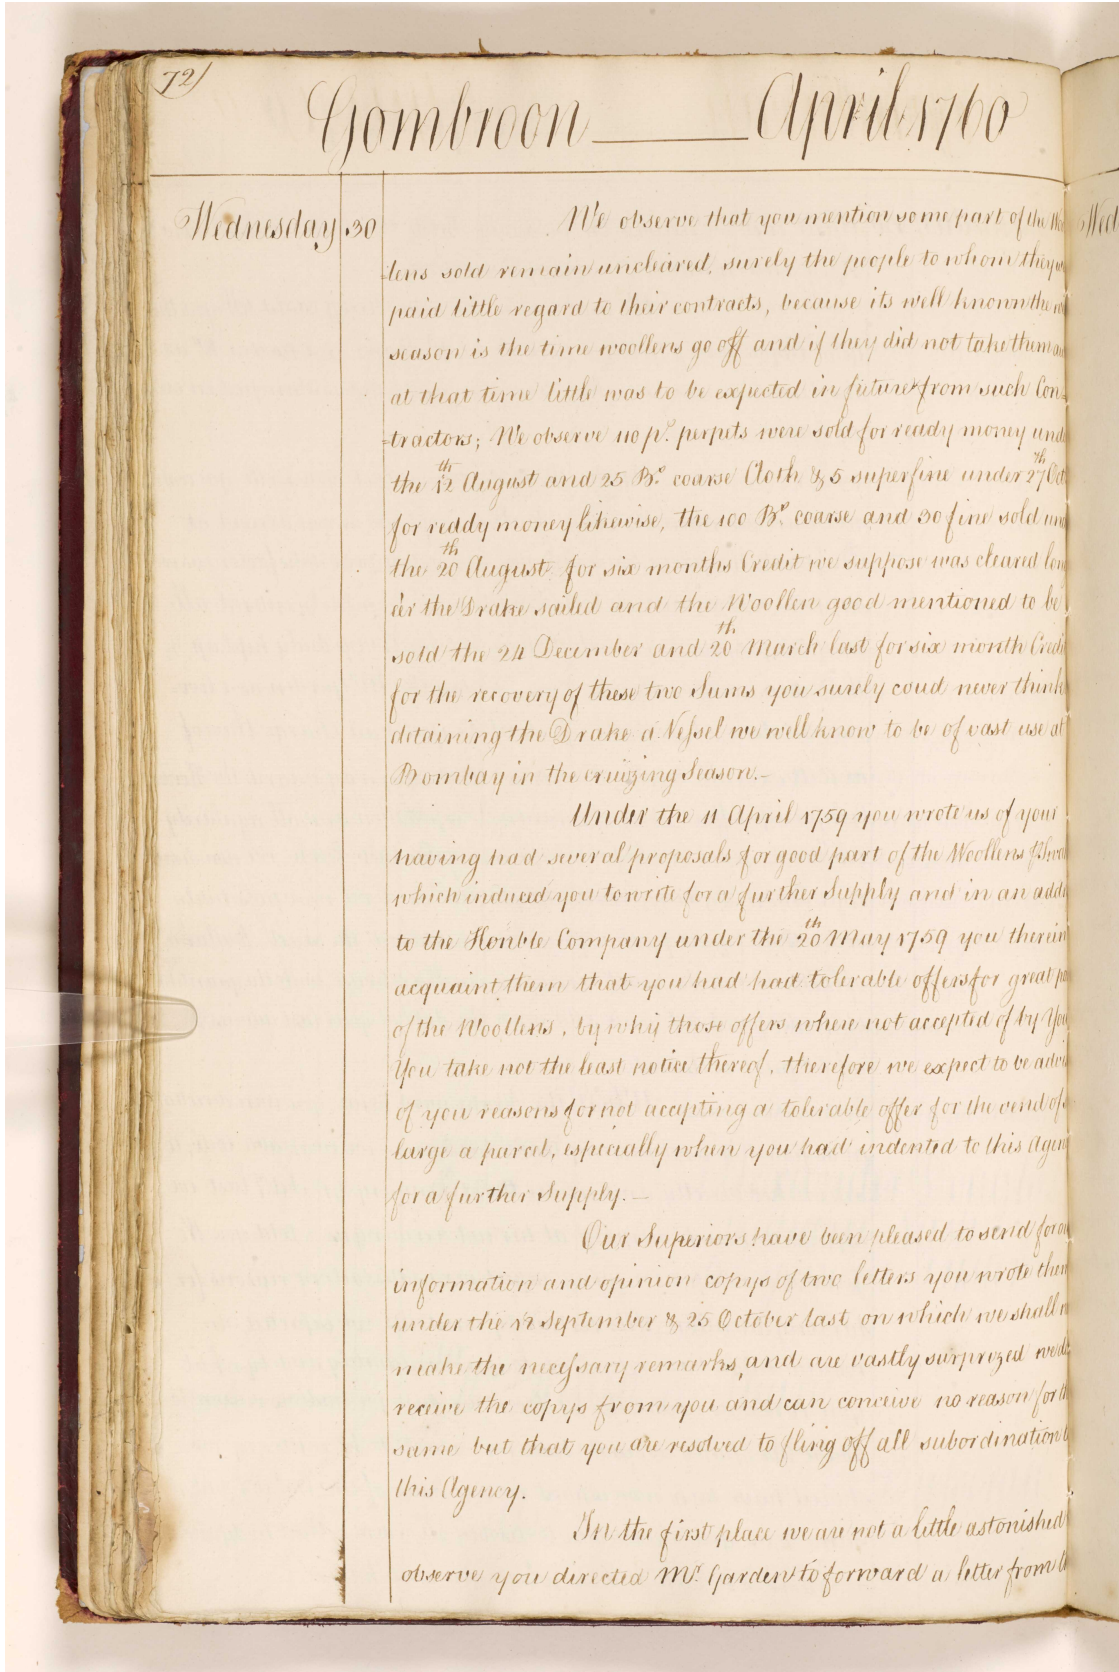 72
Gombroon April 1760
Wednesday 30
We observe that you mention some part of the
=lens sold remain uncleared, surely the people to whom they
paid little regard to their contracts, because its well known the
season is the time woollens go off and if they did not take them
at that time little was to be expected in future from such Con=
=tractors; We observe 110 ps. perpets were sold for ready money
the 12th August and 25 Bs. coarse Cloth & 5 superfine under 27th
for reddy money likewise, the 100 Bs. coarse and 30 fine sold
the 20th August for six months Credit we suppose was cleared
e'er the Drake sailed and the Woollen good mentioned to be
sold the 24 December and 20th March last for six month
for the recovery of these two Sums you surely coud never think
detaining the Drake a Vessel we well know to be of vast use at
Bombay in the cruizing Season.—
Under the 11 April 1759 you wrote us of your
having had several proposals for good part of the Woollens
which induced you to write for a further Supply and in an
to the Honble Company under the 20th May 1759 you therein
acquaint them that you had had tolerable offers for great
of the Woollens, by why those offers where not accepted of by You
You take not the least notice thereof, therefore we expect to be
of you reasons for not accepting a tolerable offer for the vend of
large a parcel, especially when you had indented to this
for a further Supply.—
Our Superiors have been pleased to send for
information and opinion copys of two letters you wrote
under the 12 September & 25 October last on which we shall
make the necessary remarks, and are vastly surprized
receive the copys from you and can conceive no reason for
same but that you are resolved to fling off all subordination
this Agency.
In the first place we are not a little astonished
observe you directed Mr. Garden to forward a letter from